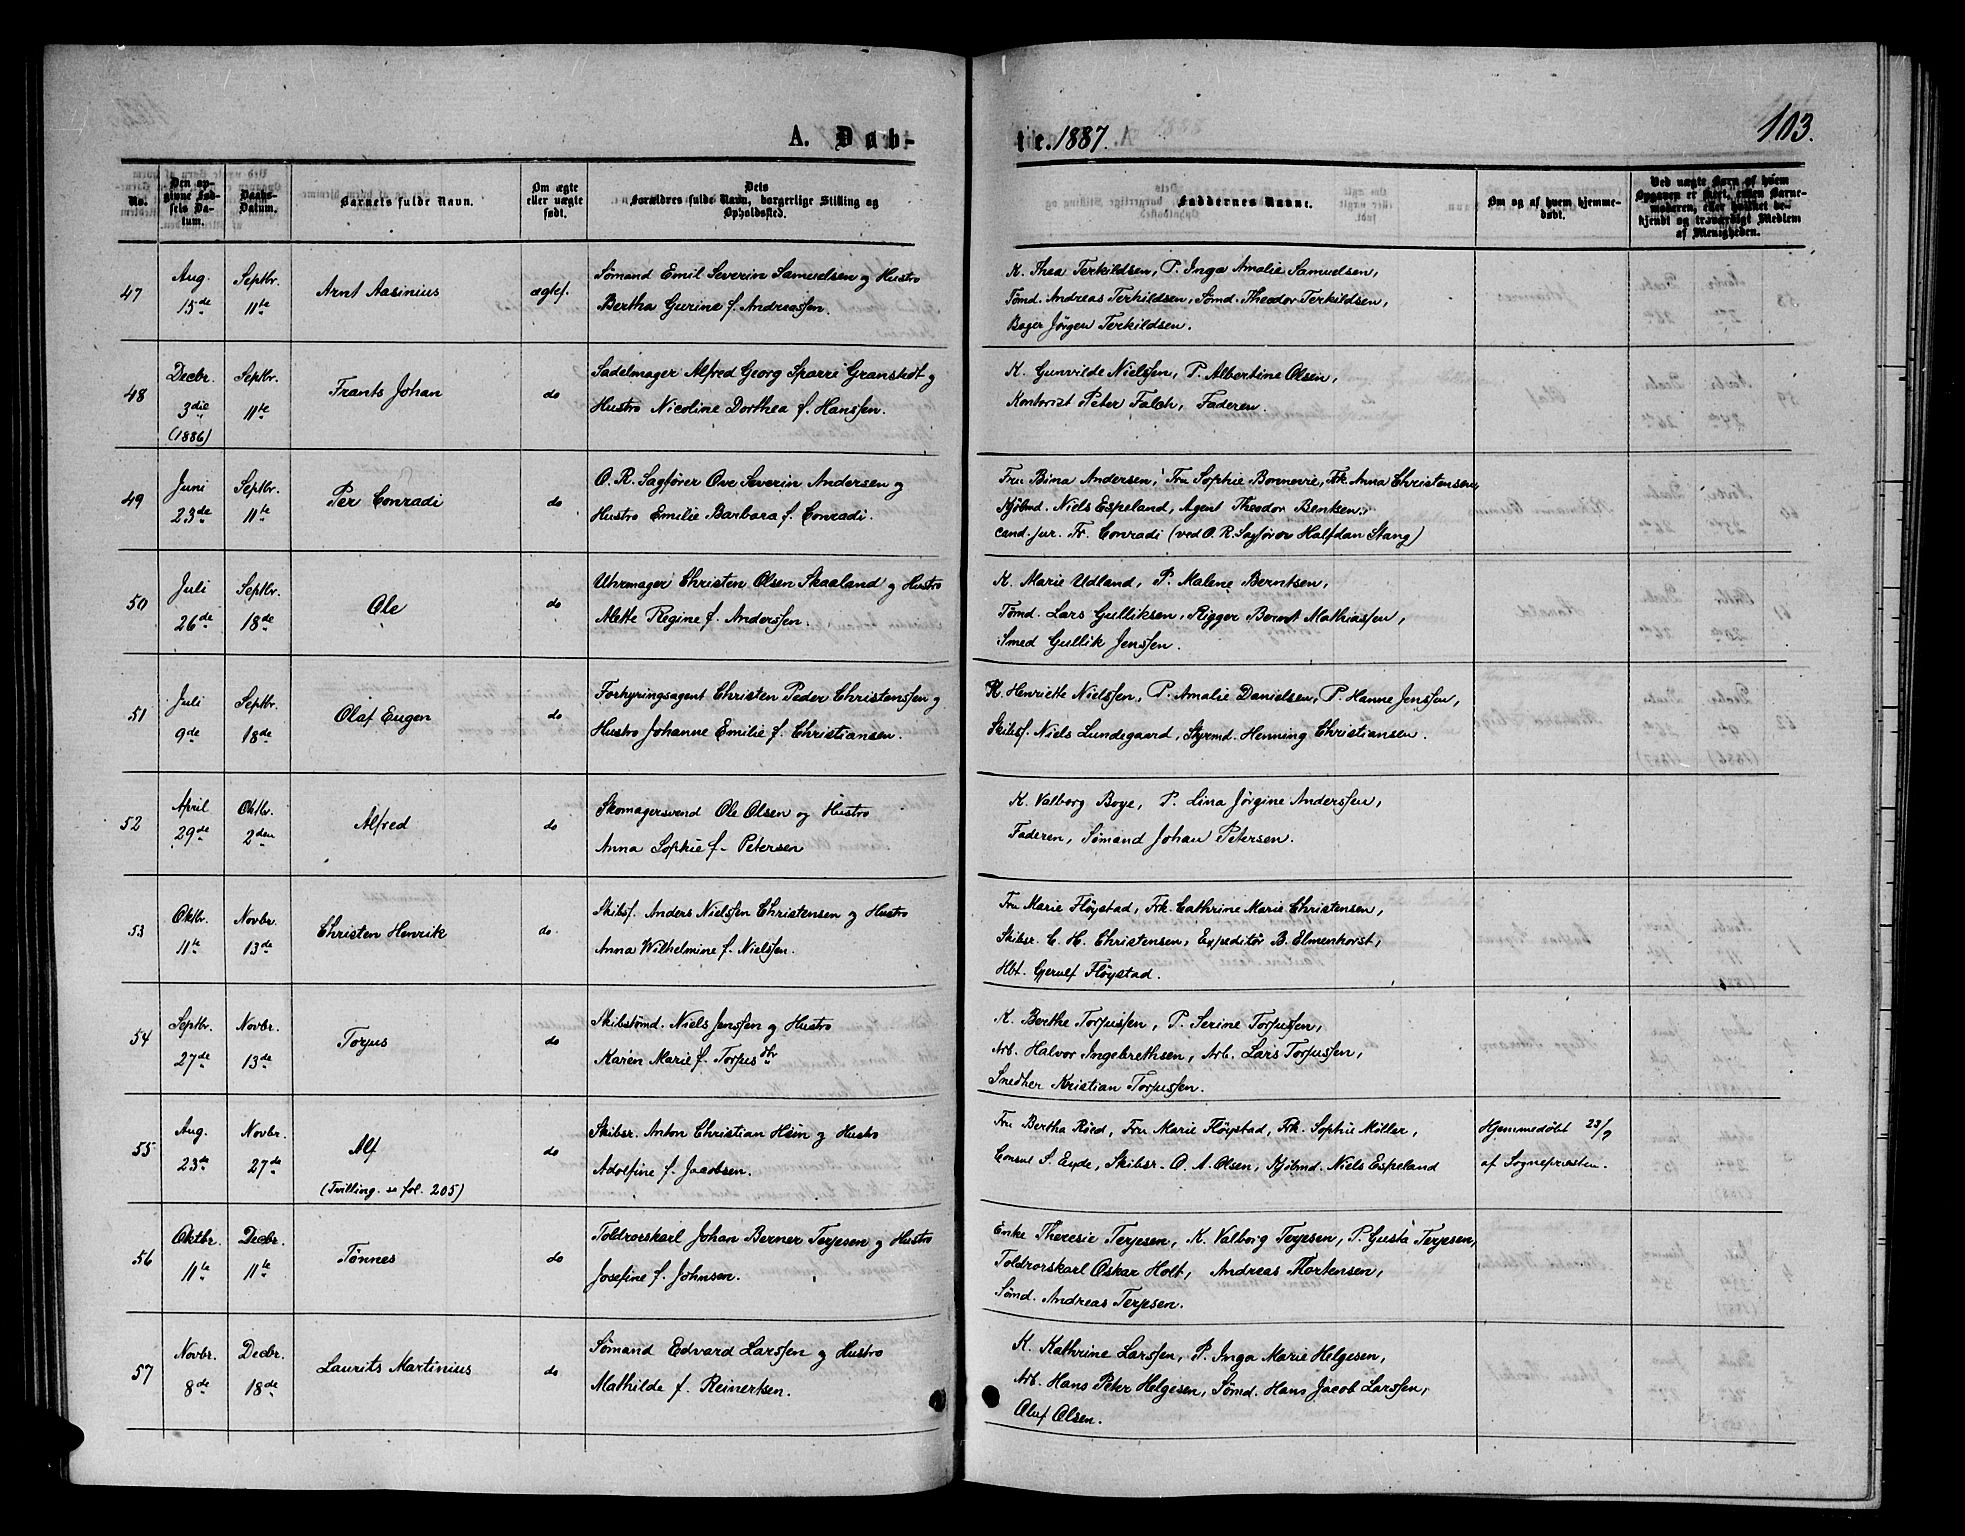 103.
A. Døb-
te. 1887.
No.
Den opgivne Fødsels Datum.
Daabs-Datum.
Barnets fulde Navn.
Om ægte eller uægte født.
Dets Forældres fulde Navn, borgerlige Stilling og Opholdssted.
Faddernes Navne.
Om og af hvem hjemmedøbt.
Ved uægte Børn af hvem Opgaven er skeet, enten Barnemoderen, eller hvilket bekjendt og troværdigt Medlem af Menigheden.
47
Aug. 15de
Septbr. 11te
Arnt Aasinius
ægtef.
Sømand Emil Severin Samuelsen og Hustro
Bertha Gurine f. Andreassen.
K. Thea Terkildsen, P. Inga Amalie Samuelsen,
Tømd. Andreas Terkildsen, Sømd. Theodor Terkildsen,
Bager Jörgen Terkildsen.
48
Decbr. 3die (1886)
Septbr. 11te
Frants Johan
do
Sadelmager Alfred Georg Sparre Granstedt og
Hustro Nicoline Dorthea f. Hanssen.
K. Gunvilde Nielssen, P. Albertine Olsen,
Kontorist Peter Falch, Faderen.
49
Juni 23de
Septbr. 11te
Per Conradi
do
O. R. Sagfører Ove Severin Andersen og
Hustro Emilie Barbara f. Conradi.
Fru Bina Andersen, Fru Sophie Bonnevie, Frk. Anna Christensen,
Kjøbmd. Niels Espeland, Agent Theodor Bentsen,
cand. jur. Fr. Conradi (ved O. R. Sagfører Halfdan Stang)
50
Juli 26de
Septbr. 18de
Ole
do
Uhrmager Christen Olsen Skaaland og Hustro
Alette Regine f. Anderssen.
K. Marie Udland, P. Malene Berntsen,
Tømd. Lars Gulliksen, Rigger Bernt Mathiassen,
Smed Gullik Jenssen.
51
Juli 9de
Septbr. 18de
Olaf Eugen
do
Forhyringsagent Christen Peder Christenssen og
Hustro Johanne Emilie f. Christiansen.
K. Henriette Nielssen, P. Amalie Danielsen, P. Hanne Jenssen,
Skibsf. Niels Lundegaard, Styrmd. Henning Christiansen.
52
April 29de
Oktbr. 2den
Alfred
do
Skomagersvend Ole Olsen og Hustro
Anna Sophie f. Petersen
K. Valborg Boye, P. Lina Jörgine Anderssen,
Faderen, Sømand Johan Petersen.
53
Oktbr. 11te
Novbr. 13de
Christen Henrik
do.
Skibsf. Anders Nielssen Christensen og Hustro
Anna Wilhelmine f. Nielssen.
Fru Marie Fløystad, Frk. Cathrine Marie Christensen,
Skibsr. C. H. Christensen, Expeditör B. Elmenhorst,
Hbt. Gerulf Fløystad.
54
Septbr. 27de
Novbr. 13de
Torjus
do
Skibstömd. Niels Jenssen og Hustro
Karen Marie f. Torjusdtr
K. Berthe Torjussen, P. Serine Torjussen,
Arb. Halvor Ingebrethsen, Arb. Lars Torjussen,
Snedker Kristian Torjussen.
55
Aug. 23de
Novbr. 27de
Alf
(Tvilling. se fol. 205)
do
Skibsr. Anton Christian Hein og Hustro
Adolfine f. Jacobsen.
Fru Bertha Röed, Fru Marie Fløystad, Frk. Sophie Møller,
Consul S. Eyde, Skibsr. O. A. Olsen, Kjöbmd. Niels Espeland
Hjemmedöbt 23/9
af Sognepræsten.
56
Oktbr. 11te
Decbr. 11te
Tønnes
do
Toldrorskarl Johan Berner Terjesen og Hustro
Josefine f. Johnsen.
Enke Theresie Terjesen, K. Valborg Terjesen, P. Gusta Terjesen,
Toldrorskarl Oskar Holt, Andreas Mortensen,
Sømd. Andreas Terjesen.
57
Novbr. 8de
Decbr. 18de
Laurits Martinius
do
Sømand Edvard Larssen og Hustro
Mathilde f. Reinertsen.
K. Kathrine Larssen, P. Inga Marie Helgesen,
Arb. Hans Peter Helgesen, Sømd. Hans Jacob Larssen,
Oluf Olsen.